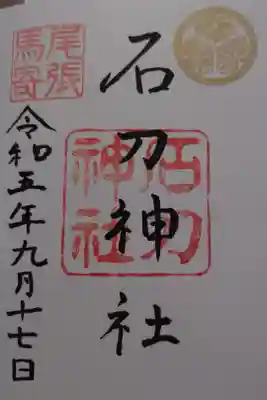 石刀神社
尾張
馬寄
石刀
神社
令和五年九月十七日